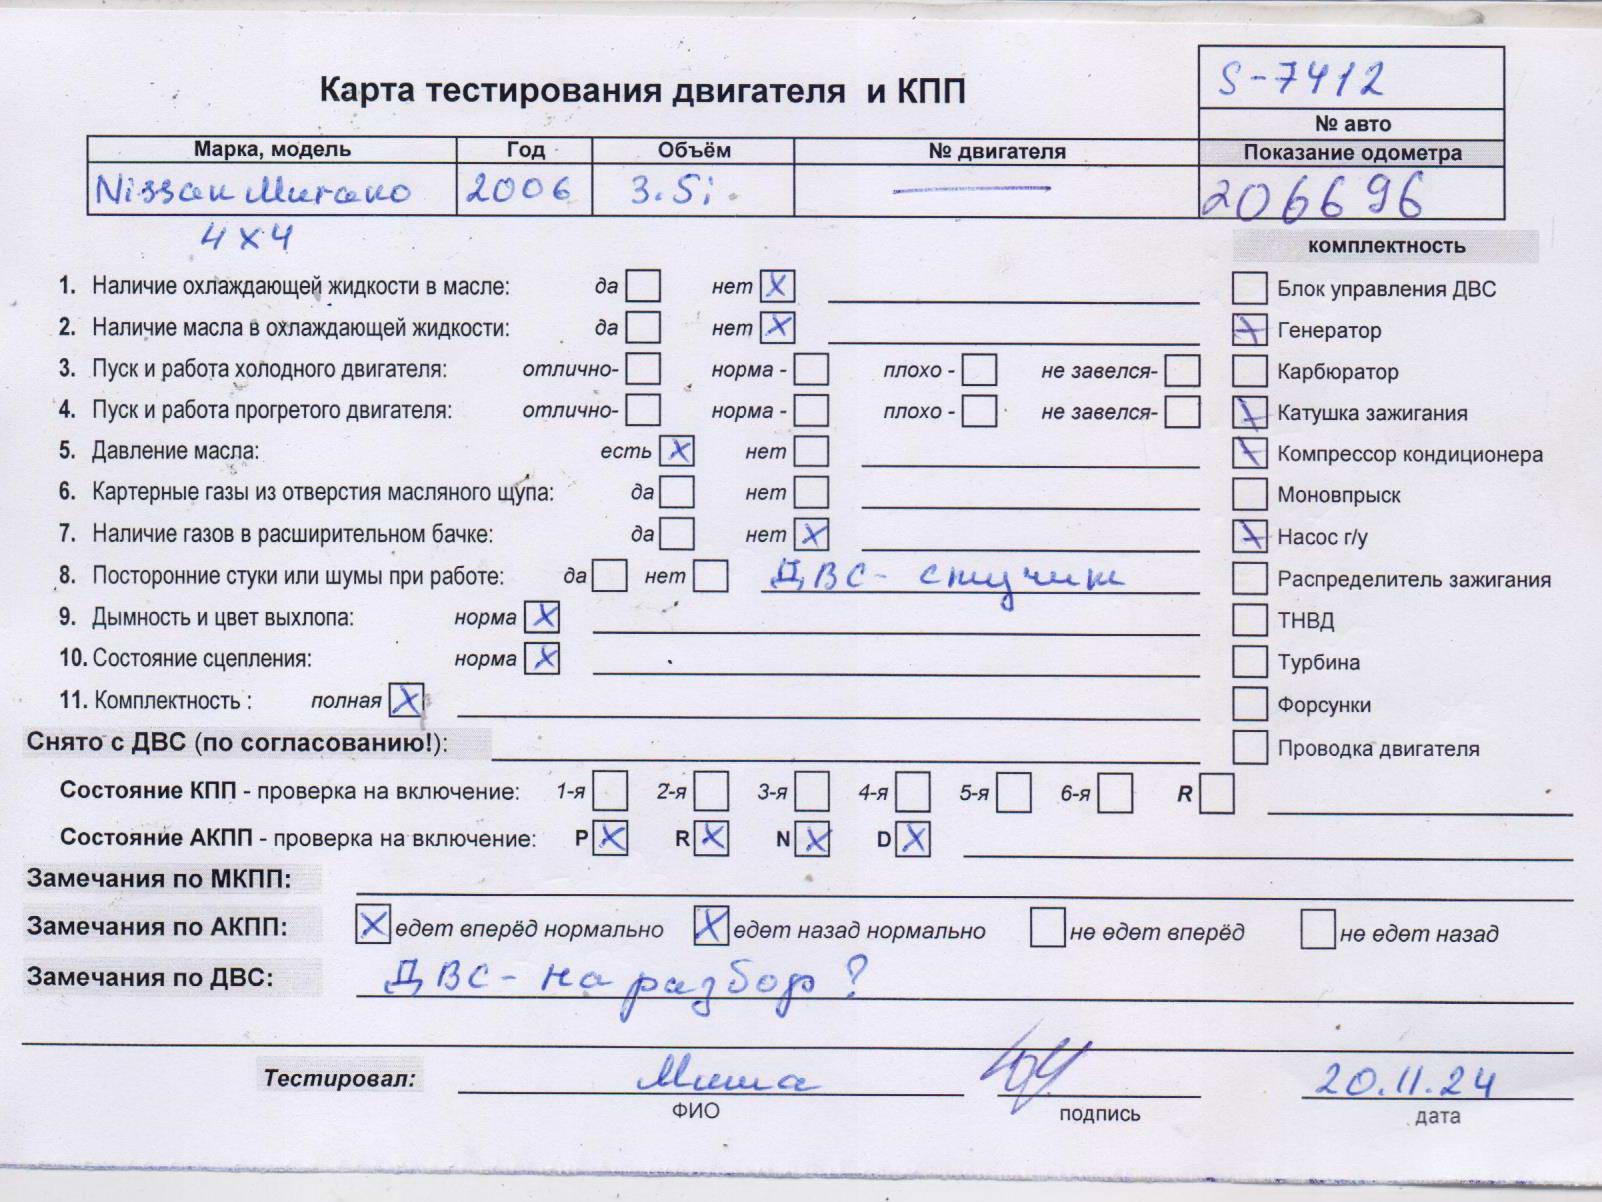 S-7412
Карта тестирования двигателя и КПП
№ авто
Марка, модель Год Объём № двигателя Показание одометра
Nissan Murano 2006 3.5i. 206696
4x4
комплектность
1. Наличие охлаждающей жидкости в масле: да нет X Блок управления ДВС
2. Наличие масла в охлаждающей жидкости: да нет X Генератор X
3. Пуск и работа холодного двигателя: отлично- норма - плохо - не завелся- Карбюратор
4. Пуск и работа прогретого двигателя: отлично- норма - плохо - не завелся- Катушка зажигания X
5. Давление масла: есть X нет Компрессор кондиционера X
6. Картерные газы из отверстия масляного щупа: да нет Моновпрыск
7. Наличие газов в расширительном бачке: да нет X Насос г/у X
8. Посторонние стуки или шумы при работе: да нет ДВС - стучит Распределитель зажигания
9. Дымность и цвет выхлопа: норма X ТНВД
10. Состояние сцепления: норма X Турбина
11. Комплектность : полная X Форсунки
Снято с ДВС (по согласованию!): Проводка двигателя
Состояние КПП - проверка на включение: 1-я 2-я 3-я 4-я 5-я 6-я R
Состояние АКПП - проверка на включение: P X R X N X D X
Замечания по МКПП:
Замечания по АКПП: X едет вперёд нормально X едет назад нормально не едет вперёд не едет назад
Замечания по ДВС: ДВС - на разбор?
Тестировал: Миша 20.11.24
ФИО подпись дата